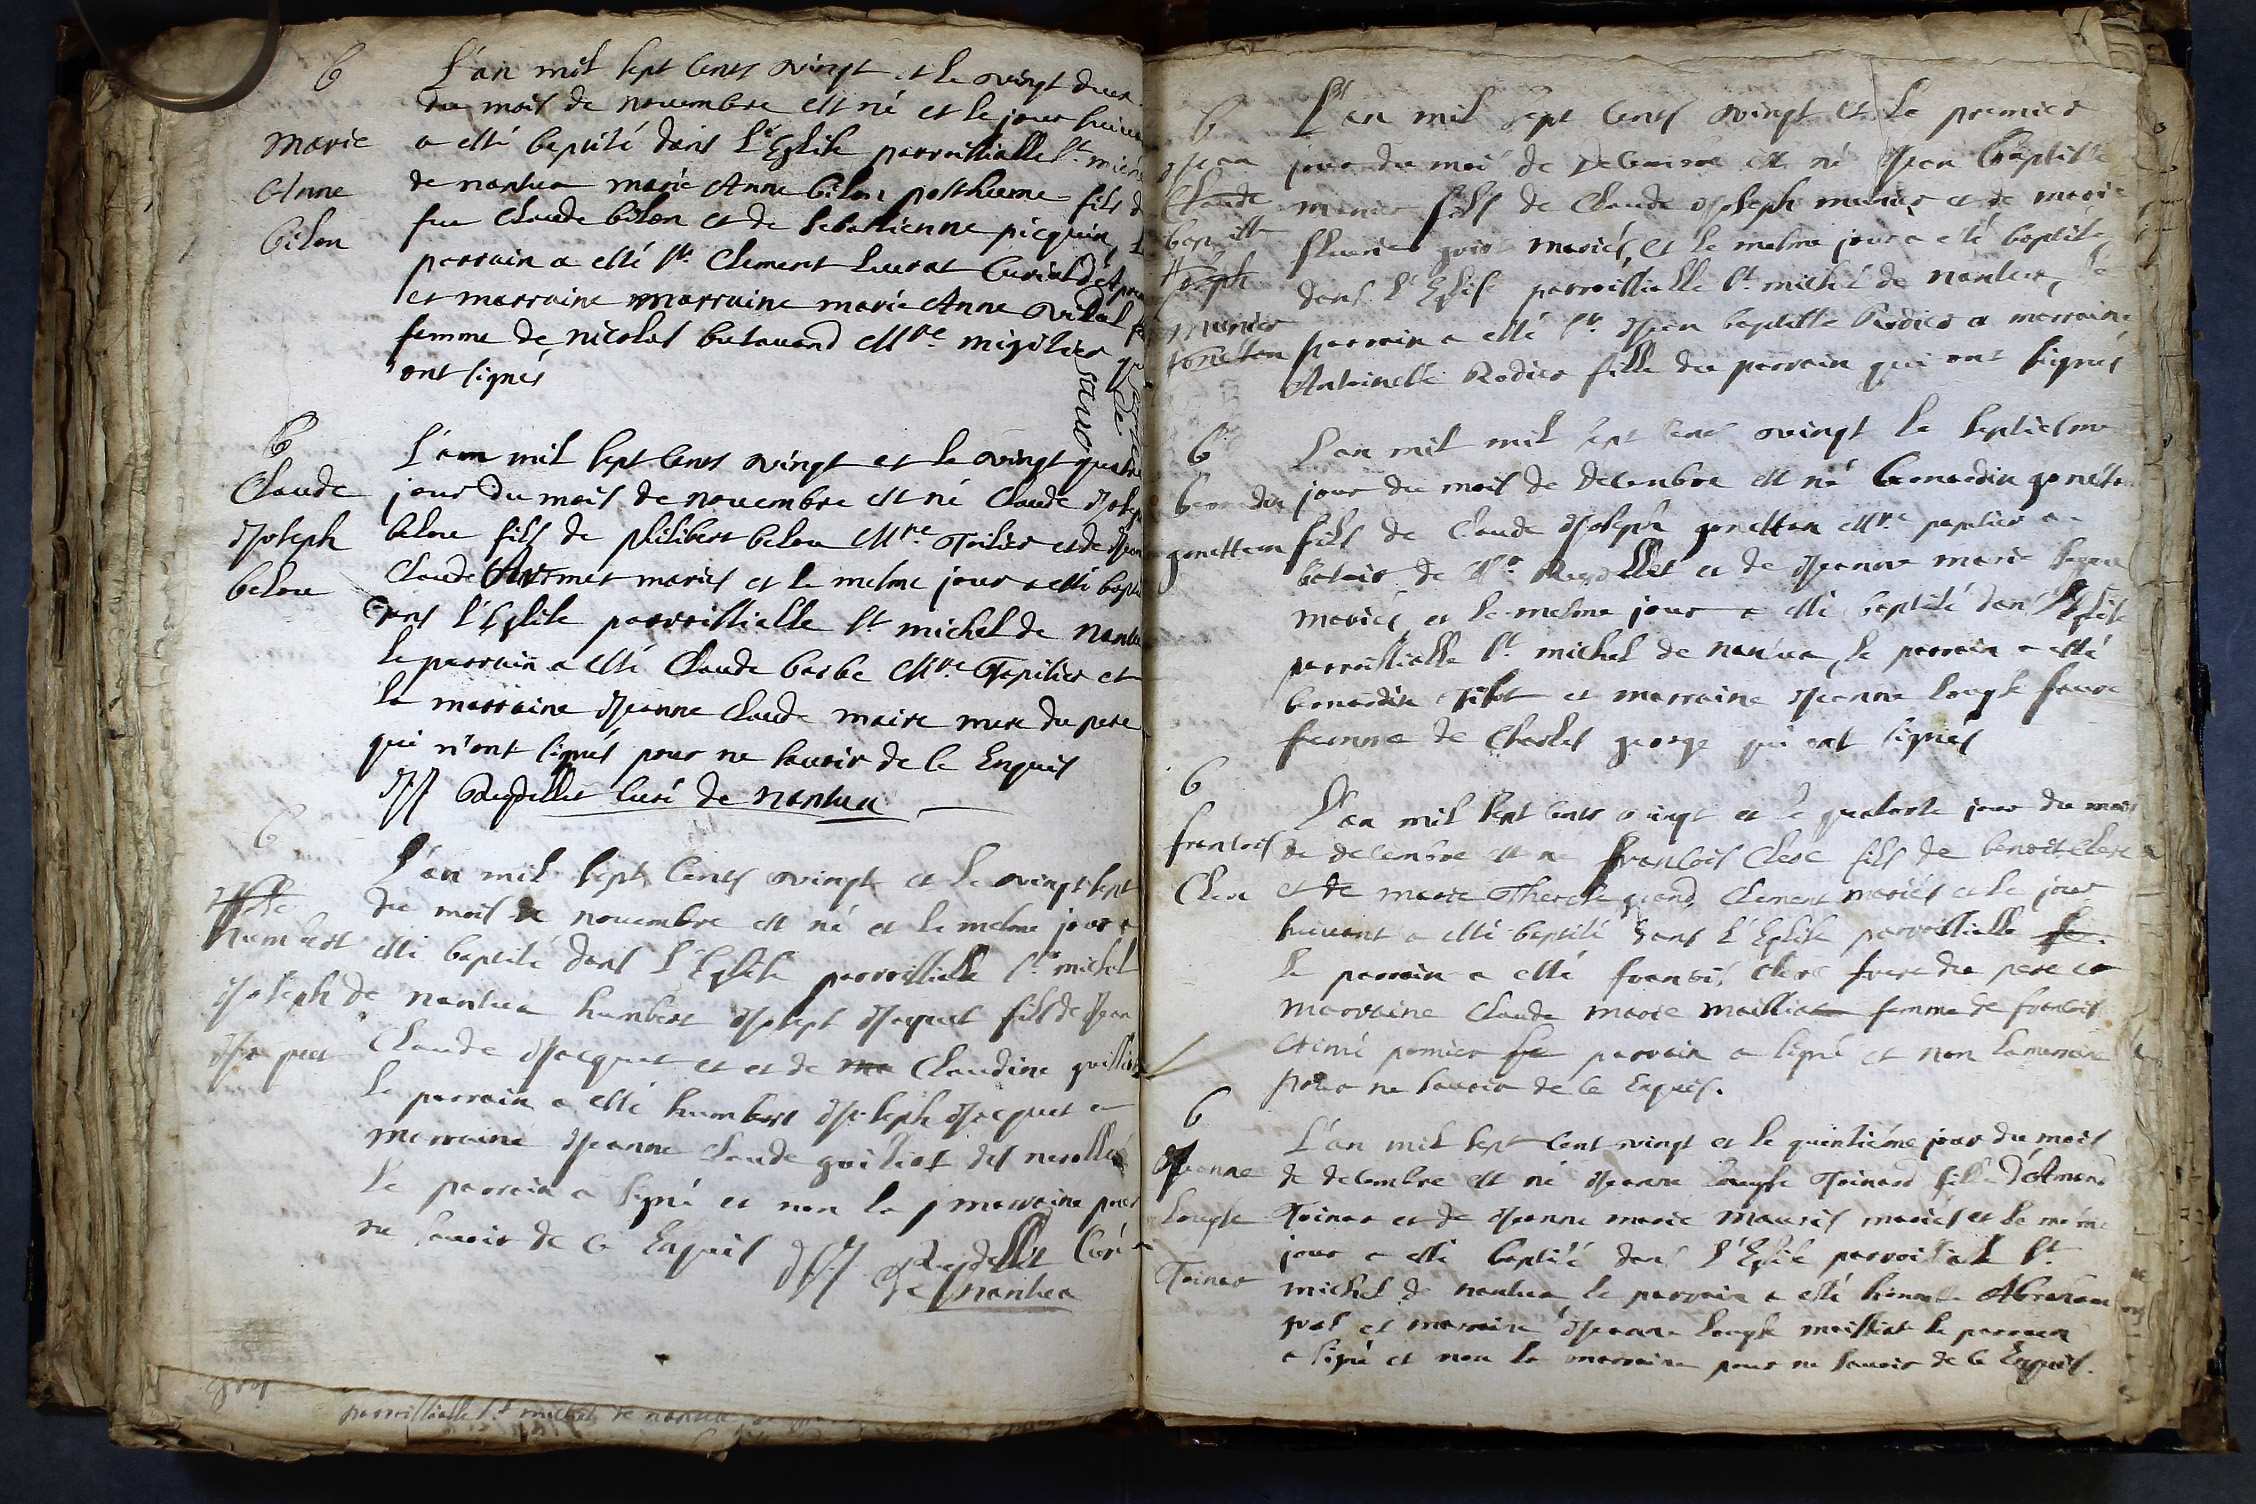 B
Marie
Anne
bilon
L'an mil sept cents vingt et le vingt deux
du mois de novembre est né et le jour suivant
a esté baptisé dans l'Eglise parroissialle St
de nantua marie Anne bilon posthume fils
feu Claude bilon et de sebastienne picquin,
parrain a esté Sr. Clement curial
et marraine marraine marie Anne
femme de nicolas butavand Mre
ont signés
B
Claude
Joseph
belou
L'ann mil sept cents vingt et le vingt quatre
jour du mois de novembre est né Claude Joseph
belou fils de philibert belou Mre et de
Claude mariés et le mesme jour a esté
dans l'Eglise parroissialle St michel de nantua
le parrain a esté Claude barbe Mre et
la marraine Jeanne Claude maire mere du pere
qui n'ont signés pour ne sçavoir de ce Enquis
JJ Reydellet curé de nantua
B
humbert
Joseph
Jaquet
L'an mil sept cents vingt et le vingt sept
du mois de novembre est né et le mesme jour a
esté baptisé dans l'Eglise parroissialle St michel
de nantua humbert Joseph Jacquet fils de Jean
Claude Jacquet et et de ma Claudine
le parrain a esté humbert Joseph Jacquet et
marraine Jeanne Claude guilliot des
le parrain a signé et non la marraine pour
ne sçavoir de ce Enquis JJ Reydellet Curé
de nantua
parroissialle St michel de nantua
B
Jean
Claude
baptiste
Joseph
Munier
gonettan
L'an mil sept cents vingt et le premier
jour du moi de decembre est né Jean baptiste
munier fils de Claude Joseph munier et de marie
mariés, et le mesme jour a été baptisé
dans l'Eglise parroissialle St michel de nantua, le
parrain a esté Sr. Jean baptiste Rodier a marraine
Antoinette Rodier fille du parrain qui ont signés
B
bernardin
gonettan
L'an mil mil sept cens vingt le septiesme
jour du mois de decembre est né bernardin
fils de Claude Joseph gonettan Mre papetier
de Mr. Reydellet et de Jeanne marie
mariés, et le mesme jour a esté baptisé dans l'Eglise
parroissialle St. michel de nantua, le parrain a esté
bernardin et marraine Jeanne
femme de Charles george qui ont signés
B
francois
Clerc
L'an mil sept cents vingt et le quatorze jour du mois
de decembre est né francois Clerc fils de benoit clerc
et de marie Therese grand Clement mariés et le jour
suivant a esté baptisé dans l'Eglise parroissialle
le parrain a esté francois Clerc frere du pere et
marraine Claude marie femme de francois
Aimé pomier parrain a signé et non la marraine
pour ne sçavoir de ce Enquis.
B
Jeanne
Toinar
L'an mil sept cent vingt et le quinziéme jour du mois
de decembre est né Jeanne Toinard fille d'Amand
Toinar et de Jeanne marie mariés et le même
jour a esté baptisé dans l'Eglise parroissialle St.
michel de nantua, le parrain a esté Abraham
et marraine Jeanne le parrain
a signé et non la marraine pour ne sçavoir de ce Enquis.